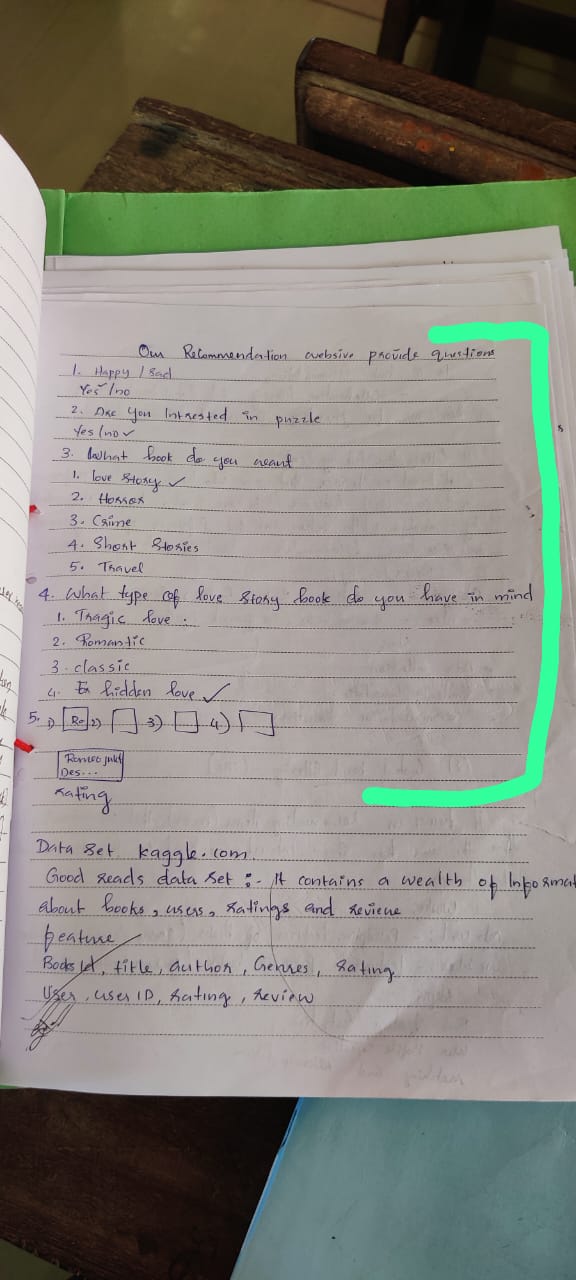 Our Recommendation websive provide questions
1. Happy / Sad
Yes / no
2. Are you Intrested in puzzle
Yes / no ✓
3. What book do you want
1. love Story ✓
2. Horror
3. Crime
4. Short Stories
5. Travel
4. What type of love story book do you have in mind
1. Tragic love.
2. Romantic
3. classic
4. hidden love ✓
5. 1) Ro 2) 3) 4)
Des...
rating
Data set kaggle.com
Good reads data set :- It contains a wealth of Informat
about books, users, ratings and reviene
feature
title, author, Genres, rating
User, user ID, rating, review